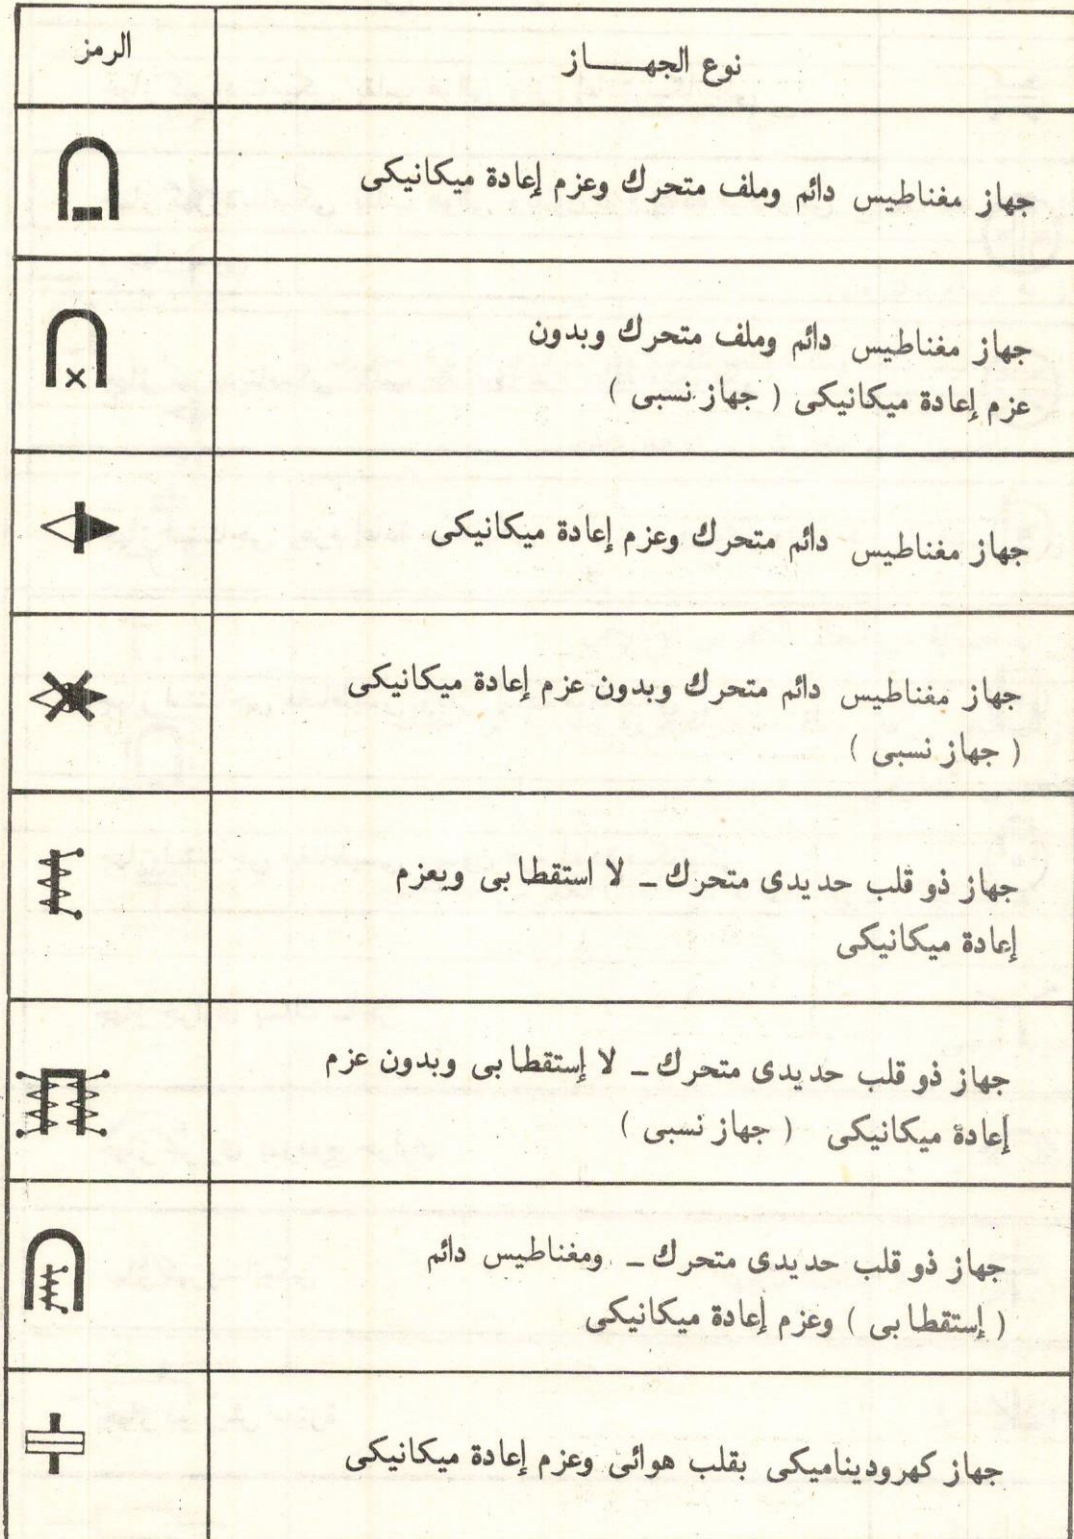 نوع الجهــــاز
الرمز
جهاز مغناطيس دائم وملف متحرك وعزم إعادة ميكانيكى
جهاز مغناطيس دائم وملف متحرك وبدون
عزم إعادة ميكانيكى ( جهاز نسبى )
جهاز مغناطيس دائم متحرك وعزم إعادة ميكانيكى
جهاز مغناطيس دائم متحرك وبدون عزم إعادة ميكانيكى
( جهاز نسبى )
جهاز ذو قلب حديدى متحرك - لا استقطابى وبعزم
إعادة ميكانيكى
جهاز ذو قلب حديدى متحرك - لا إستقطابى وبدون عزم
إعادة ميكانيكى ( جهاز نسبى )
جهاز ذو قلب حديدى متحرك - ومغناطيس دائم
( إستقطابى ) وعزم إعادة ميكانيكى
جهاز كهروديناميكى بقلب هوائى وعزم إعادة ميكانيكى